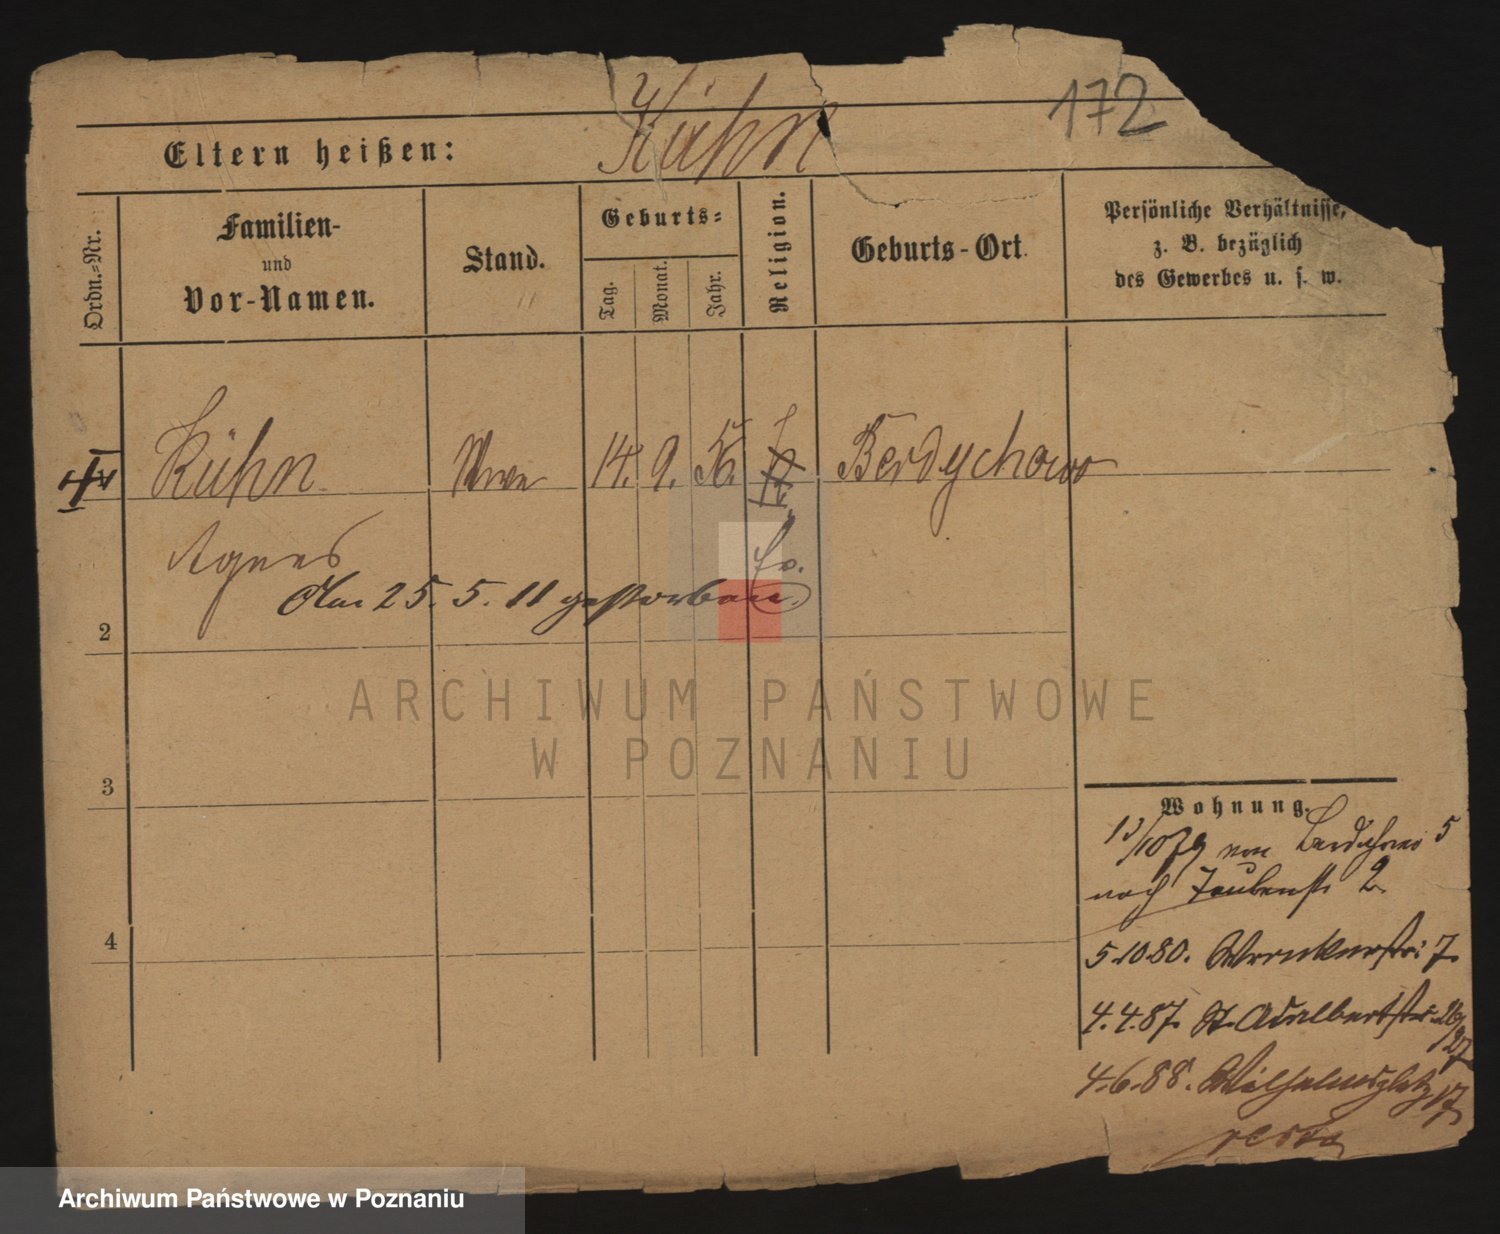 172
Eltern heißen: Kühn
Ordn.-Nr.
Familien-
und
Vor-Namen.
Stand.
Geburts-
Tag.
Monat.
Jahr.
Religion.
Geburts-Ort.
Persönliche Verhältnisse,
z. B. bezüglich
des Gewerbes u. s. w.
Kühn Wwe 14. 9. 56. Berdychowo
Agnes ev.
Am 25. 5. 11 gestorben.
2
3
4
Wohnung.
/10 79 von Berdychowo 5
nach Taubenstr. 2.
5.10.80. Wronkerstr: 7.
4.4.87. St. Adalbertstr. 26/27
4.6.88. Wilhelmsplatz 17
ARCHIWUM PAŃSTWOWE
W POZNANIU
Archiwum Państwowe w Poznaniu